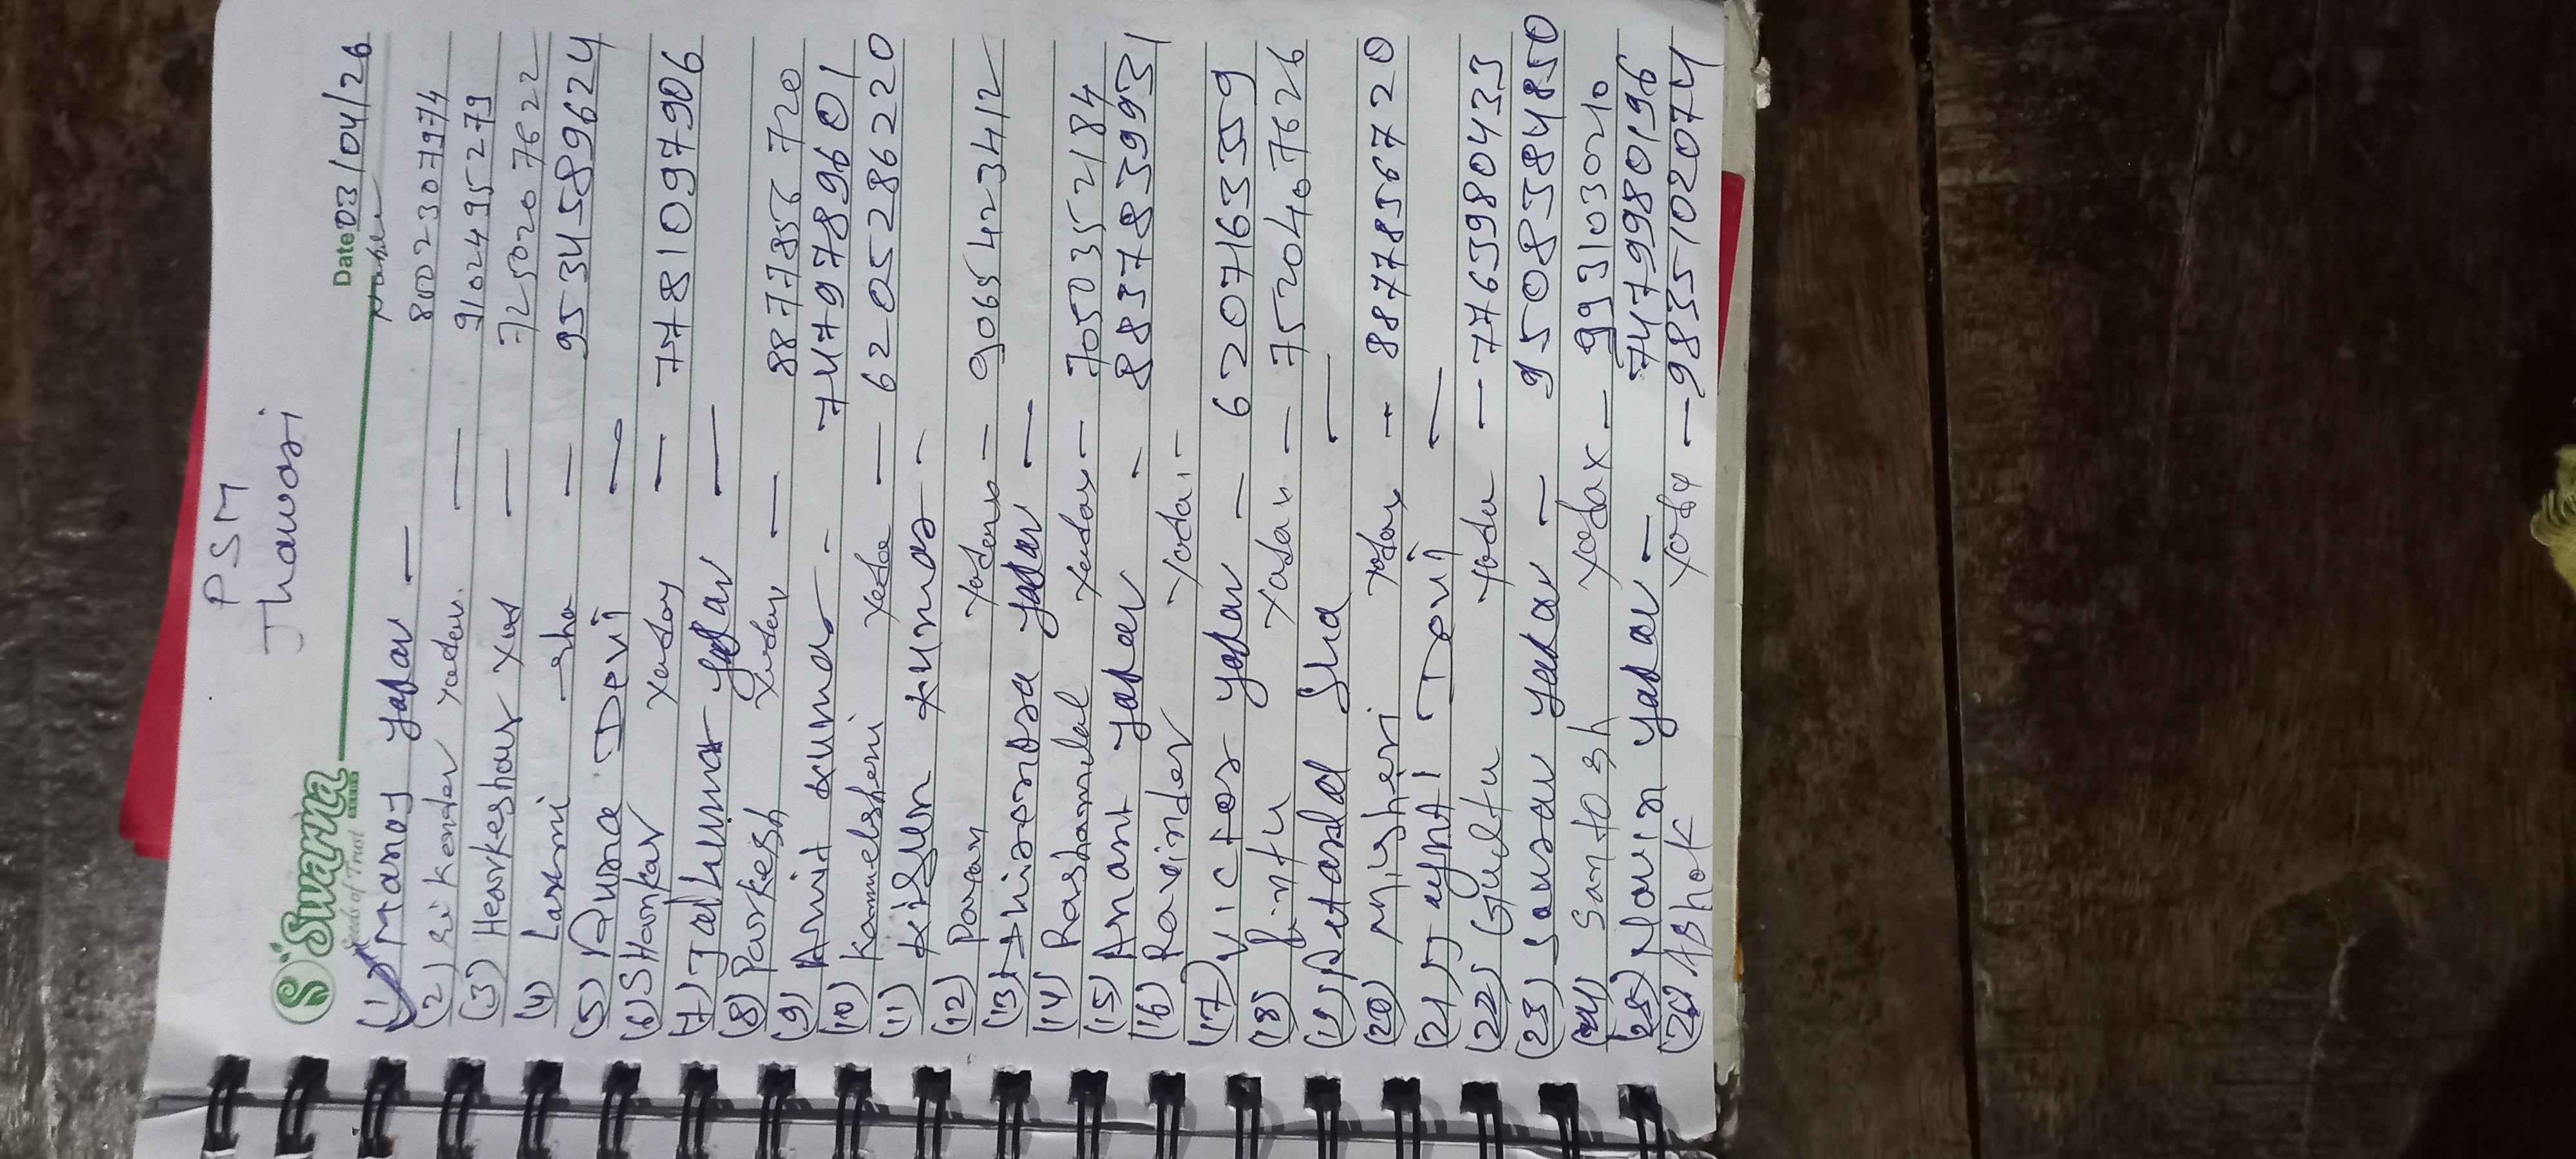 PSM
Jhawari
Swarna
Seeds of Trust
Date 03/04/26
Mober
(1) Manoj yadav —
(2) Sikender yadav — 8002307974
(3) Hearkeshavr Yad — 9102495279
(4) Laxmi sha — 7250207622
(5) Puna Devi — 9534589624
(6) SHankar Yaday — 7781097906
(7) Jalkumar yadav —
(8) Parkesh Yaday — 8877856720
(9) Amit Kumar - 7479789601
(10) Kamelsheri Yada — 6205286220
(11) Kisun Kumar -
(12) Pavan Yadav — 9065423412
(13) Dhirendra yadav —
(14) Rashamilal Yadav - 7050352184
(15) Anant yadav - 8837839931
(16) Ravinder Yadav -
(17) Victor yadav — 6207163359
(18) Pintu Yadav — 7520407626
(19) Sha —
(20) Misheri Yadav - 8877856720
(21) Jaynti Devi —
(22) Gultu Yadu — 7763980433
(23) Saurav yadav — 9508384850
(24) Santosh Yadav — 993103020
(25) Navin yadav — 7479980196
(26) AShok Yada — 9835102074